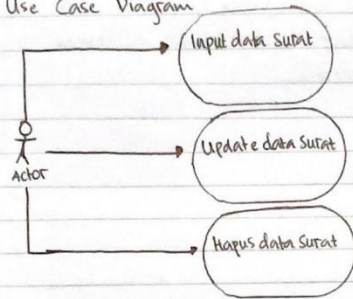 Use Case Diagram
Input data surat
Update data surat
Actor
Hapus data surat